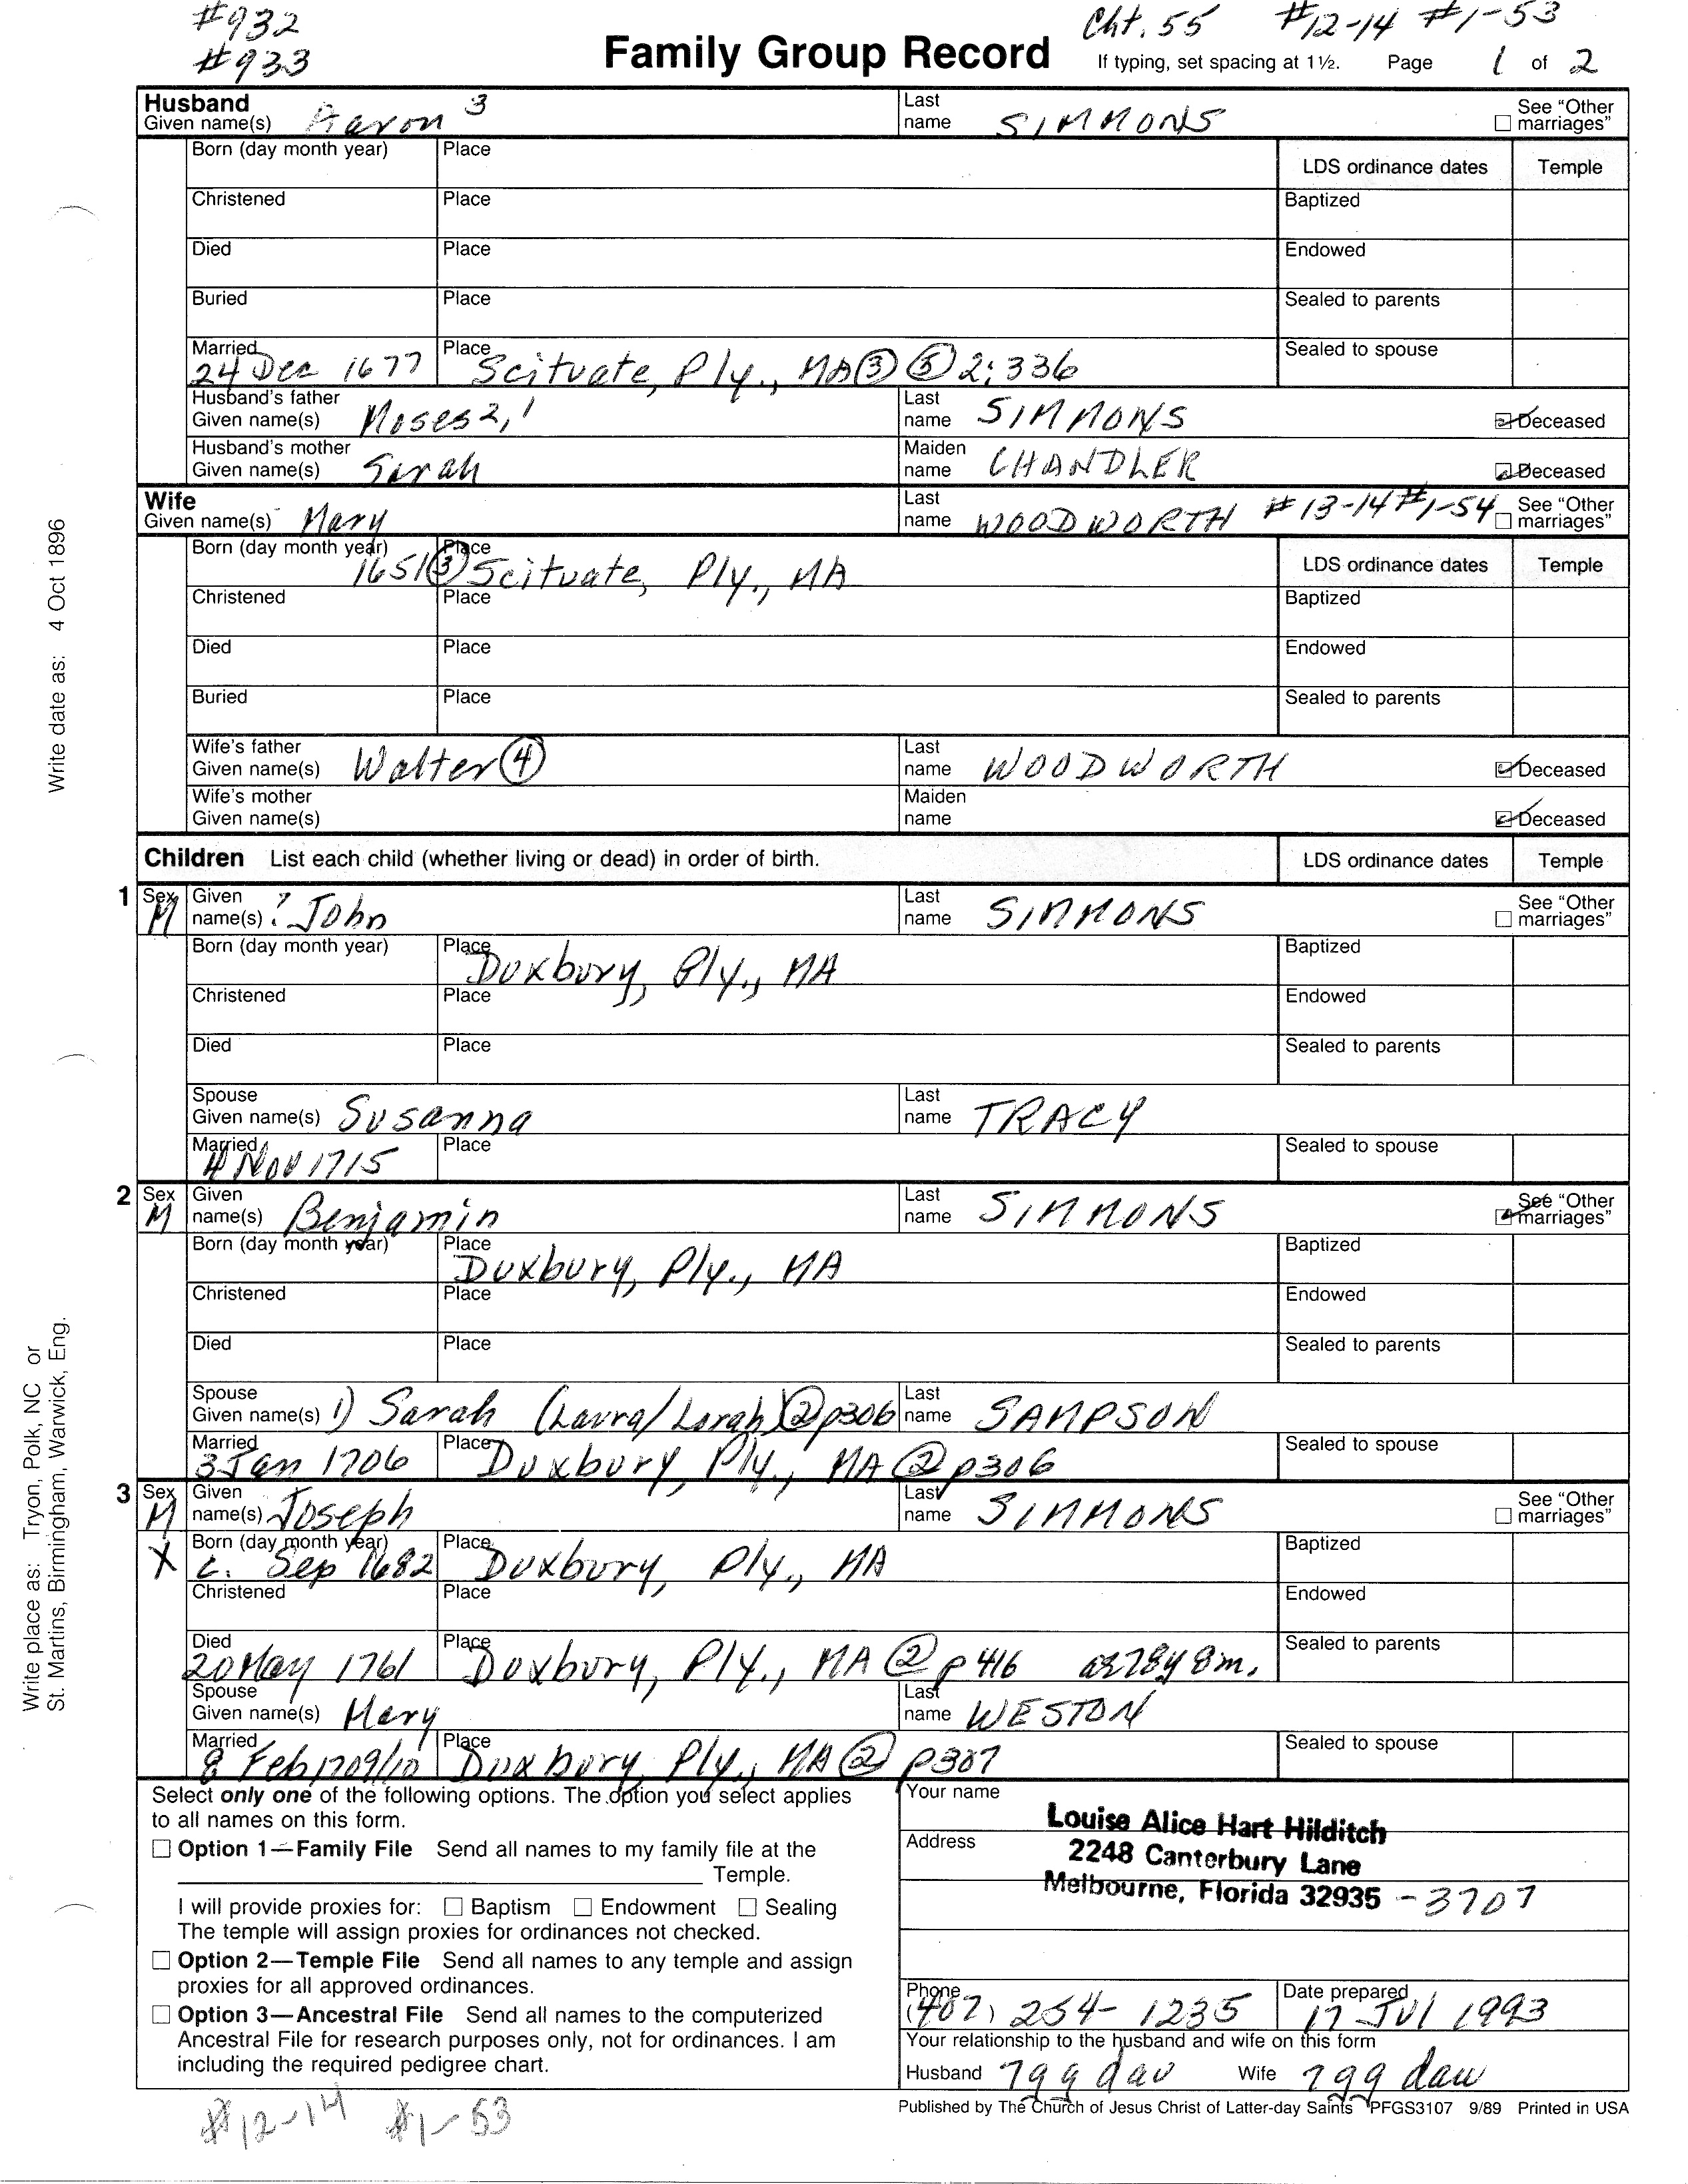 #932
#933
Family Group Record
Cht. 55 #12-14 #1-53
If typing, set spacing at 1½. Page 1 of 2
Husband
Given name(s) Aaron 3 Last name SIMMONS See "Other marriages"
Born (day month year) Place LDS ordinance dates Temple
Christened Place Baptized
Died Place Endowed
Buried Place Sealed to parents
Married 24 Dec 1677 Place Scituate, Ply., MA ③ ⑤ 2:336 Sealed to spouse
Husband's father Given name(s) Moses 2,1 Last name SIMMONS Deceased
Husband's mother Given name(s) Sarah Maiden name CHANDLER Deceased
Wife
Given name(s) Mary Last name WOODWORTH #13-14 #1-54 See "Other marriages"
Born (day month year) 1651 ③ Place Scituate, Ply., MA LDS ordinance dates Temple
Christened Place Baptized
Died Place Endowed
Buried Place Sealed to parents
Wife's father Given name(s) Walter ④ Last name WOODWORTH Deceased
Wife's mother Given name(s) Maiden name Deceased
Children List each child (whether living or dead) in order of birth. LDS ordinance dates Temple
1 Sex M Given name(s) ? John Last name SIMMONS See "Other marriages"
Born (day month year) Place Duxbury, Ply., MA Baptized
Christened Place Endowed
Died Place Sealed to parents
Spouse Given name(s) Susanna Last name TRACY
Married 4 Nov 1715 Place Sealed to spouse
2 Sex M Given name(s) Benjamin Last name SIMMONS See "Other marriages"
Born (day month year) Place Duxbury, Ply., MA Baptized
Christened Place Endowed
Died Place Sealed to parents
Spouse Given name(s) 1) Sarah (Laura/Lorah) ② p306 Last name SAMPSON
Married 3 Jan 1706 Place Duxbury, Ply., MA ② p306 Sealed to spouse
3 Sex M Given name(s) Joseph Last name SIMMONS See "Other marriages"
X Born (day month year) c. Sep 1682 Place Duxbury, Ply., MA Baptized
Christened Place Endowed
Died 20 May 1761 Place Duxbury, Ply., MA ② p416 ae 78y 8m. Sealed to parents
Spouse Given name(s) Mary Last name WESTON
Married 8 Feb 1709/10 Place Duxbury, Ply., MA ② p307 Sealed to spouse
Select only one of the following options. The option you select applies
to all names on this form.
Option 1—Family File Send all names to my family file at the
Temple.
I will provide proxies for: Baptism Endowment Sealing
The temple will assign proxies for ordinances not checked.
Option 2—Temple File Send all names to any temple and assign
proxies for all approved ordinances.
Option 3—Ancestral File Send all names to the computerized
Ancestral File for research purposes only, not for ordinances. I am
including the required pedigree chart.
Your name Louise Alice Hart Hilditch
Address 2248 Canterbury Lane
Melbourne, Florida 32935 -3707
Phone (407) 254-1235 Date prepared 17 Jul 1993
Your relationship to the husband and wife on this form
Husband 7gg dau Wife 7gg dau
Published by The Church of Jesus Christ of Latter-day Saints PFGS3107 9/89 Printed in USA
#12-14 #1-53
Write date as: 4 Oct 1896
Write place as: Tryon, Polk, NC or
St. Martins, Birmingham, Warwick, Eng.